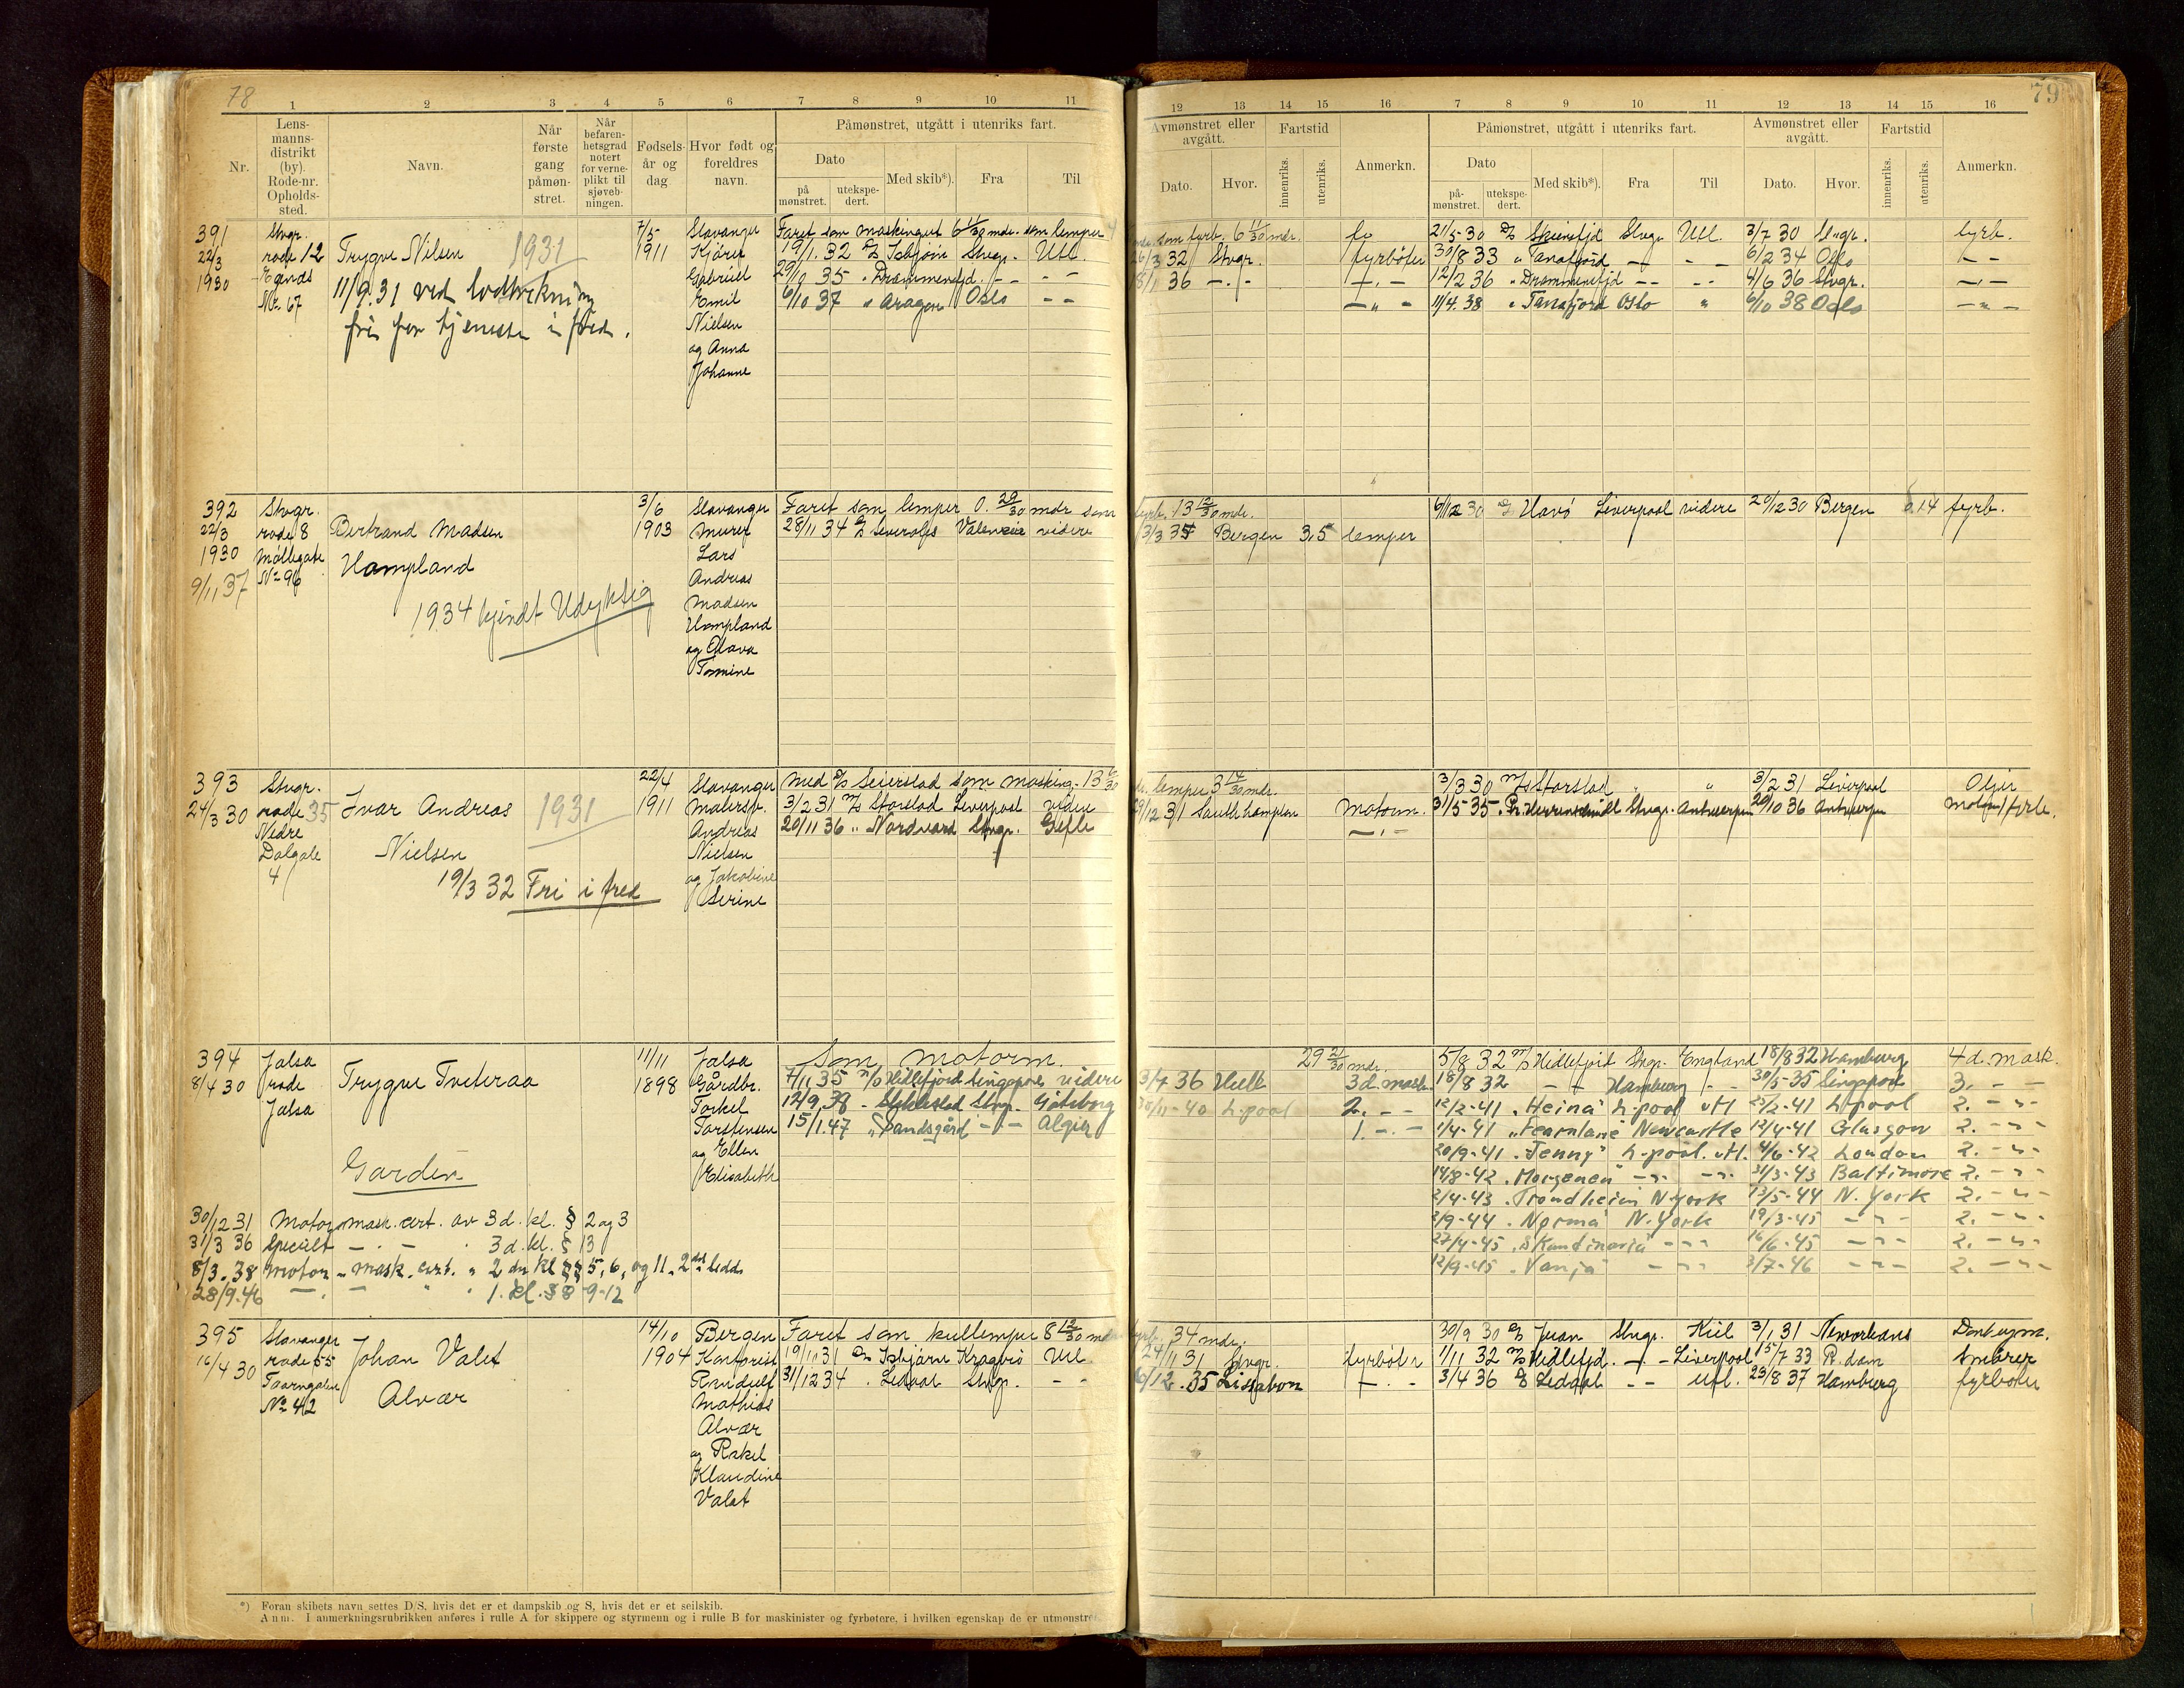 78
79
1 2 3 4 5 6 7 8 9 10 11 12 13 14 15 16 7 8 9 10 11 12 13 14 15 16
Nr.
Lens-
manns-
distrikt
(by).
Rode-nr.
Opholds-
sted.
Navn.
Når
første
gang
påmøn-
stret.
Når
befaren-
hetsgrad
notert
for verne-
plikt til
sjøveb-
ningen.
Fødsels-
år og
dag
Hvor født og
foreldres
navn.
Påmønstret, utgått i utenriks fart.
Dato
på
mønstret.
utekspe-
dert.
Med skib*).
Fra
Til
Avmønstret eller
avgått.
Dato.
Hvor.
Fartstid
innenriks.
utenriks.
Anmerkn.
Påmønstret, utgått i utenriks fart.
Dato
på-
mønstret.
utekspe-
dert.
Med skib*).
Fra
Til
Avmønstret eller
avgått.
Dato.
Hvor.
Fartstid
innenriks.
utenriks.
Anmerkn.
391
22/3
1930
Stvgr.
rode 12
Egands
Nr. 67
Trygve Nilsen
1931
11/9.31 ved
fri for tjeneste i fred.
7/5
1911
Stavanger
Gabriel
Emil
Nielsen
og Anna
Johanne
Faret som maskingut 6 11/30 mdr. som lemper
19/1.32 D/S Isbjørn Stvgr. Utl.
35 " Drammensfjd. - - - -
6/10 37 " Aragon Oslo - -
som fyrb. 6 11/30 mdr.
26/3 32 Stvgr. fyrbøter
18/1 36 - . - - . -
- " -
21/5-30 D/S Skiensfjd Stvgr Utl. 3/7 30 Stvgr. fyrb.
30/8 33 " Tanafjord - - - - 6/2 34 Oslo - -
12/2 36 " Drammensfjd - - - - 4/6 36 Stvgr. - . -
11/4.38 " Tanafjord Oslo " 6/10 38 Oslo - " -
392
22/3
1930
9/11 37
Stvgr.
rode 8
Møllegate
Nr. 96
Bertrand Madsen
Hampland
1934 kjendt Udyktig
3/6
1903
Stavanger
Murer
Lars
Andreas
Madsen
Hampland
og Olava
Tomine
Faret som lemper 0. 29/30 mdr som
28/11 34 D/S Leverolfs Valencia videre
fyrb. 13 12/30 mdr.
13/3 35 Bergen 3,5 lemper
6/12 30 D/S Havø Liverpool videre 20/12 30 Bergen 0.14 fyrb.
393
24/3 30
Stvgr.
rode 35
Nedre
Dalgate
4
Ivar Andreas
Nielsen
1931
19/3 32 Fri i fred
22/4
1911
Stavanger
Malersv.
Andreas
Nielsen
og Jakobine
Serine
Med D/S Seierstad som masking. 13 6/30
3/2 31 M/S Storstad Liverpool videre
20/11 36 " Nordvard Stvgr. Gefle
lemper 3 14/30 mdr.
29/12 31 Southhampton Motorm.
- . -
3/3 30 M/S Storstad " " 3/2 31 Liverpool Oljer
31/5-35. Stvgr. Antwerpen 20/10 36 Antwerpen
394
8/4 30
Jelsa
rode
Jelsa
Trygve Tveteraa
Gardin
11/11
1898
Jelsa
Gårdbr.
Torkel
Torstensen
og Ellen
Elisabeth
Som motorm.
7/11 35 M/S Hidlefjord Singapore videre
12/9.38 - Stvgr. Gøteborg
15/1.47 " Sandsgård - " - Algier
29 2/30 mdr.
3/7 36 Hull 3d. mask.
30/11-40 L.pool 2. - -
1. - . -
5/8 32 M/S Hidlefjord Stvgr. England 18/8 32 Hamburg 4 d. mask.
18/8 32 - - Hamburg - - 30/5-35 Singapore 3. - -
12/2-41 "Heina" L.pool utl 25/2-41 L.pool 2. - " -
1/4-41 "Fearnlane" Newcastle 12/4-41 Glasgow 2. - " -
20/9-41 "Jenny" L.pool. utl. 4/6-42 London 2. - " -
14/8-42 "Morgenen" - " - - " - 31/3-43 Baltimore 2. - " -
2/4-43 "Trondheim" N.York 13/5-44 N.York 2. - " -
2/9-44 "Norma" N.York 19/3-45 - " - 2. - " -
27/4-45 "Skandinavia" - " - 16/6-45 - " - 2. - " -
12/9-45 "Vanja" - " - 3/7-46 - " - 2. - " -
30/12 31 Motormask. cert. av 3d. kl. § 2 og 3
31/3 36 Specielt - . - . 3 d. kl. § 13
8/3.38 Motor " mask. cert. " 2 dn kl §§ 5, 6, og 11. 2det ledd
28/9.46 - . - " . 1. kl. § 8-9-12
395
16/4 30
Stavanger
rode 55
Taarngaten
No 42
Johan Valet
Alvær
14/10
1904
Bergen
Kontorist
Randulf
Mathias
Alvær
og Rakel
Klaudine
Valet
Faret som kullemper 8 12/30 mdr
19/1 31 D/S Isbjørn Kragerø Utl.
31/12 34 . Ledaal Stvgr. - -
fyrb. 34 mdr.
24/11 31 Stvgr. fyrbøter
6/12.35 Lissabon - . -
30/9 30 D/S Juan Stvgr. Kiel 3/1 31 Neworleans Donkeym.
1/11 32 M/S Hidlefjd. - . - Liverpool 15/7 33 R.dam Smører
3/4 36 D/S Ledaal - - Utl. 23/8 37 Hamburg fyrbøter
*) Foran skibets navn settes D/S, hvis det er et dampskib og S, hvis det er et seilskib.
Anm. I anmerkningsrubrikken anføres i rulle A for skippere og styrmenn og i rulle B for maskinister og fyrbøtere, i hvilken egenskap de er utmønstret.